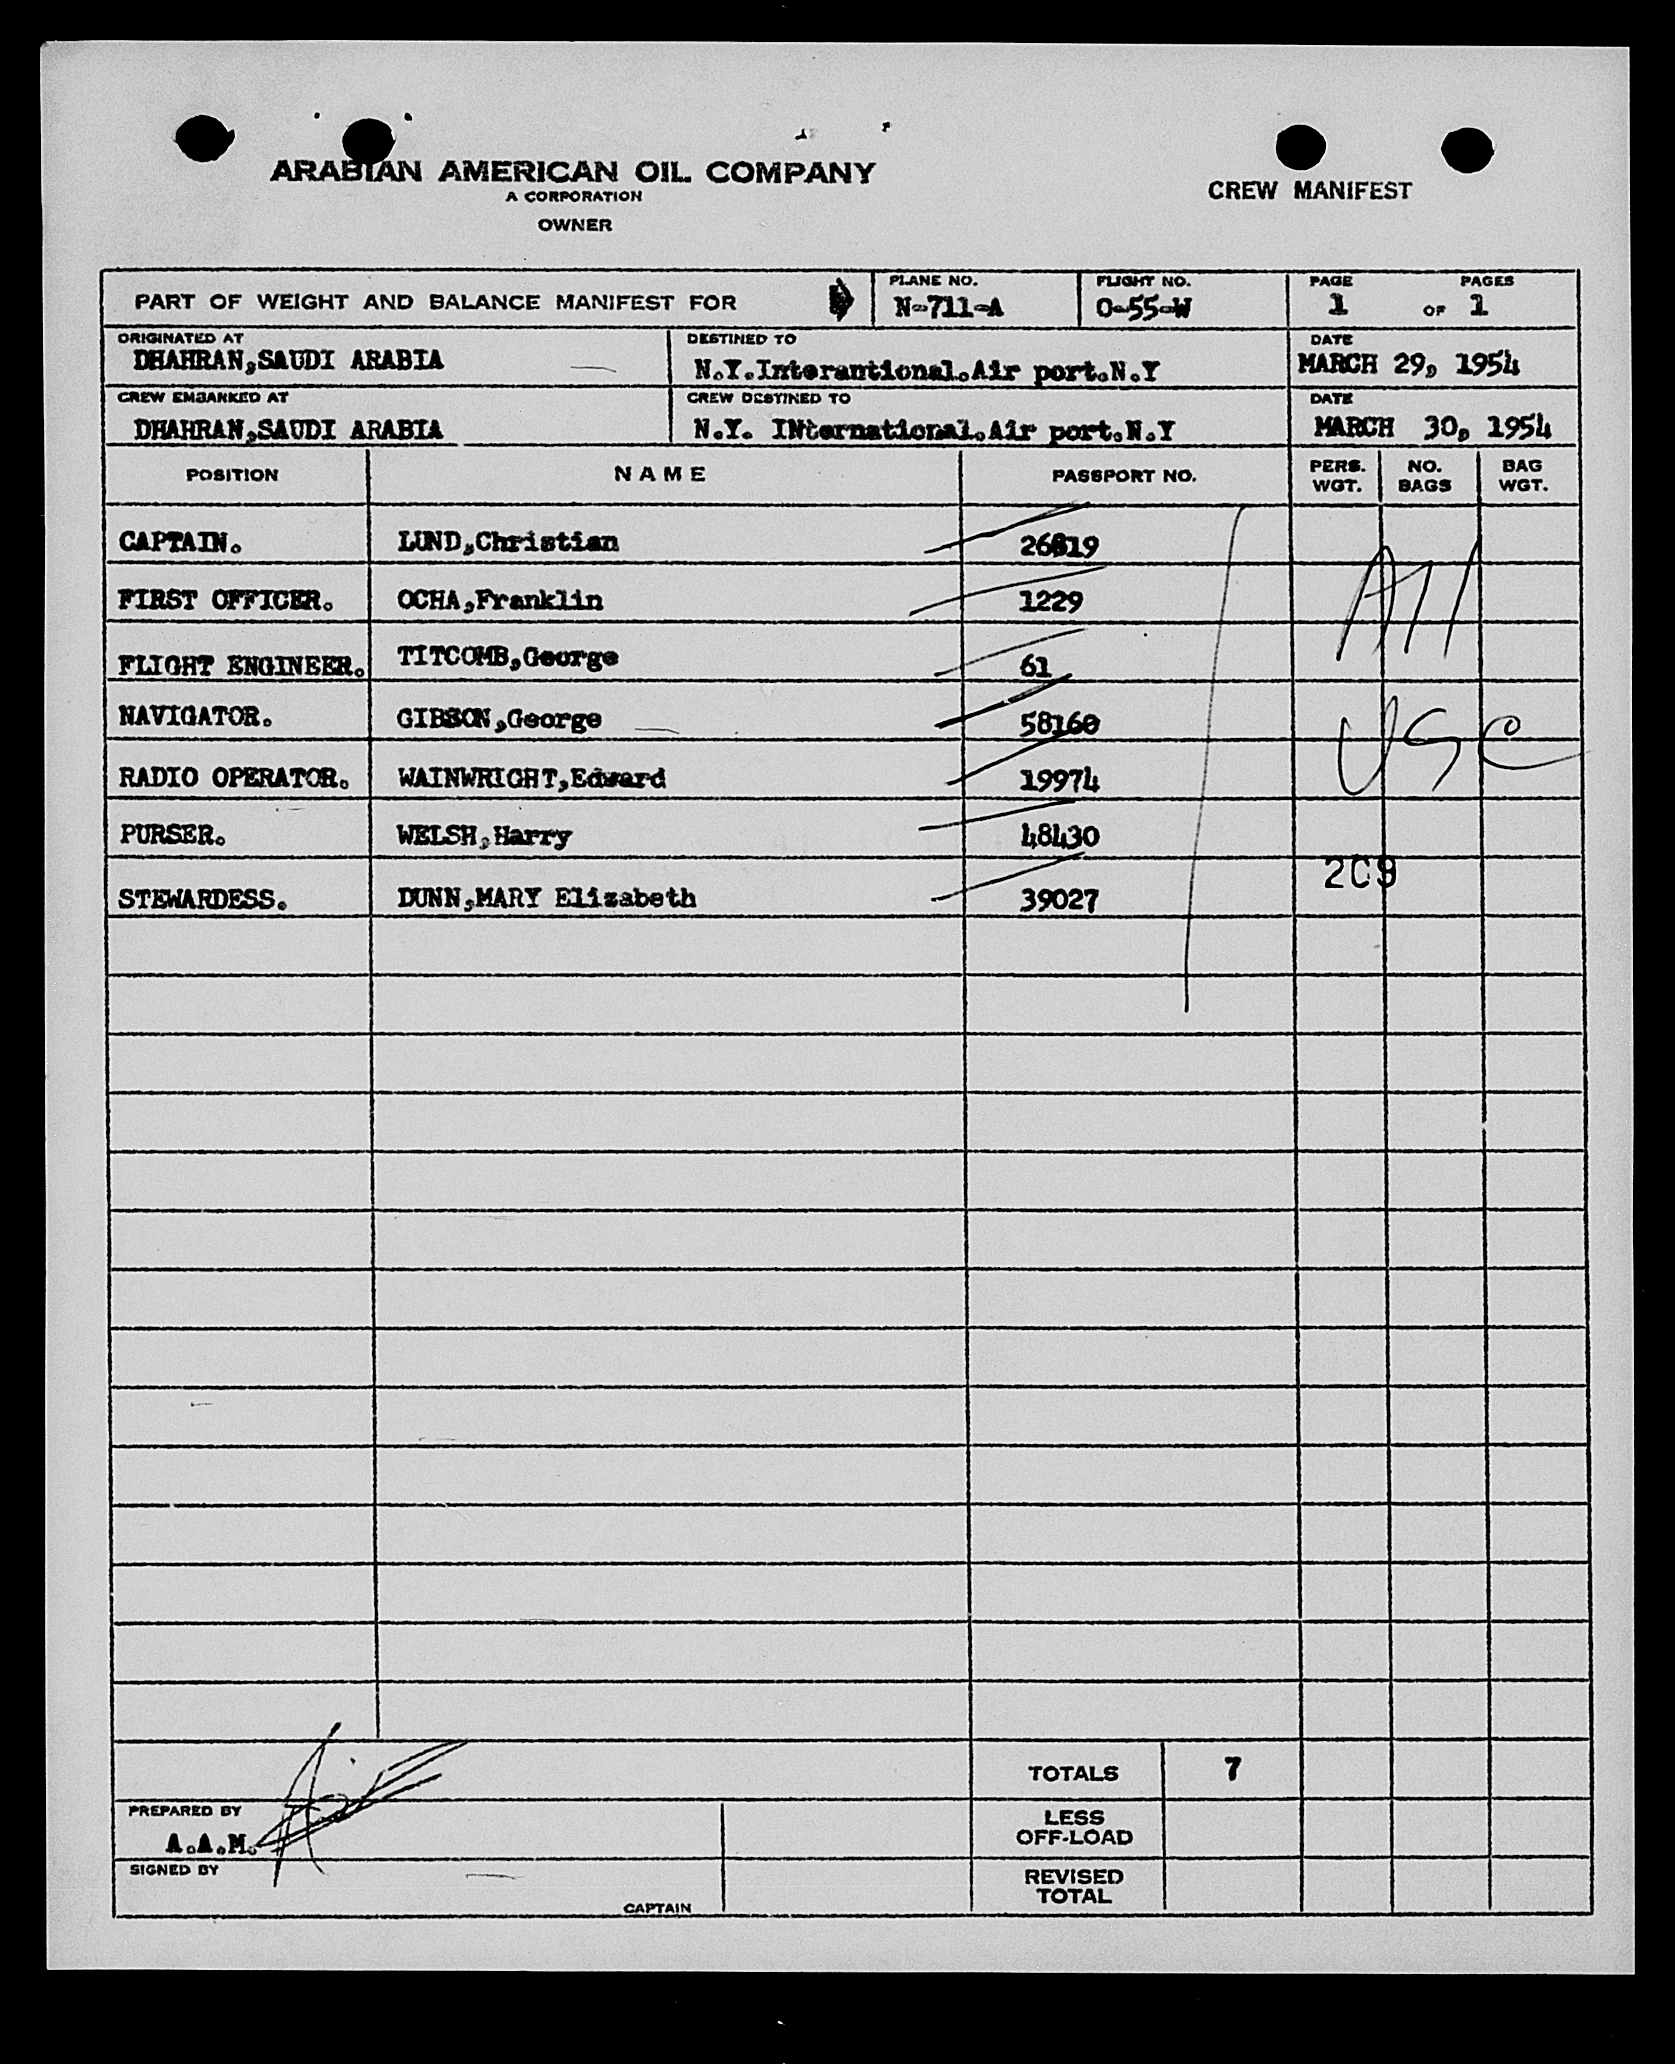 ARABIAN AMERICAN OIL COMPANY
A CORPORATION
OWNER
CREW MANIFEST
PART OF WEIGHT AND BALANCE MANIFEST FOR
PLANE NO.
N-711-A
FLIGHT NO.
O-55-W
PAGE PAGES
1 OF 1
ORIGINATED AT
DHAHRAN,SAUDI ARABIA
DESTINED TO
N.Y.Interantional.Air port.N.Y
DATE
MARCH 29, 1954
CREW EMBARKED AT
DHAHRAN,SAUDI ARABIA
CREW DESTINED TO
N.Y. INternational.Air port.N.Y
DATE
MARCH 30, 1954
POSITION NAME PASSPORT NO. PERS. WGT. NO. BAGS BAG WGT.
CAPTAIN. LUND,Christian 26819
FIRST OFFICER. OCHA,Franklin 1229
FLIGHT ENGINEER. TITCOMB,George 61
NAVIGATOR. GIBSON,George 58160
RADIO OPERATOR. WAINWRIGHT,Edward 19974
PURSER. WELSH,Harry 48430
STEWARDESS. DUNN,MARY Elizabeth 39027
All
USC
209
TOTALS 7
PREPARED BY
A.A.M.
LESS
OFF-LOAD
SIGNED BY
CAPTAIN
REVISED
TOTAL